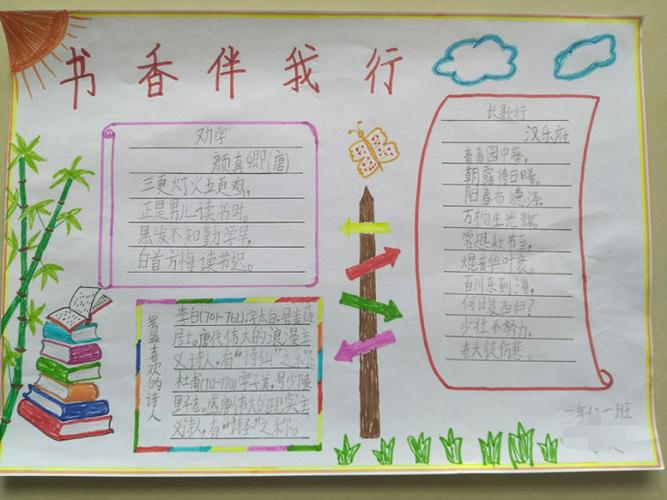 书香伴我行
劝学
颜真卿(唐)
三更灯火五更鸡,
正是男儿读书时。
黑发不知勤学早,
白首方悔读书迟。
长歌行
汉乐府
青青园中葵,
朝露待日晞。
阳春布德泽,
万物生光辉。
常恐秋节至,
焜黄华叶衰。
百川东到海,
何日是西归?
少壮不努力,
老大徒伤悲。
我最喜欢的诗人
李白(701-762)字太白,号青莲
居士。唐代伟大的浪漫主
义诗人,有“诗仙”之称
杜甫(710-770)字子美,号少陵
野老。唐伟大的现实主
义诗人,有“诗圣”之称。